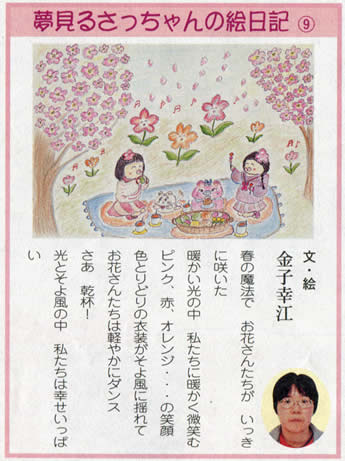 夢見るさっちゃんの絵日記 ⑨
文・絵
金子幸江
春の魔法で　お花さんたちが　いっき
に咲いた
暖かい光の中　私たちに暖かく微笑む
ピンク、赤、オレンジ・・・の笑顔
色とりどりの衣装がそよ風に揺れて
お花さんたちは軽やかにダンス
さあ　乾杯！
光とそよ風の中　私たちは幸せいっぱ
い